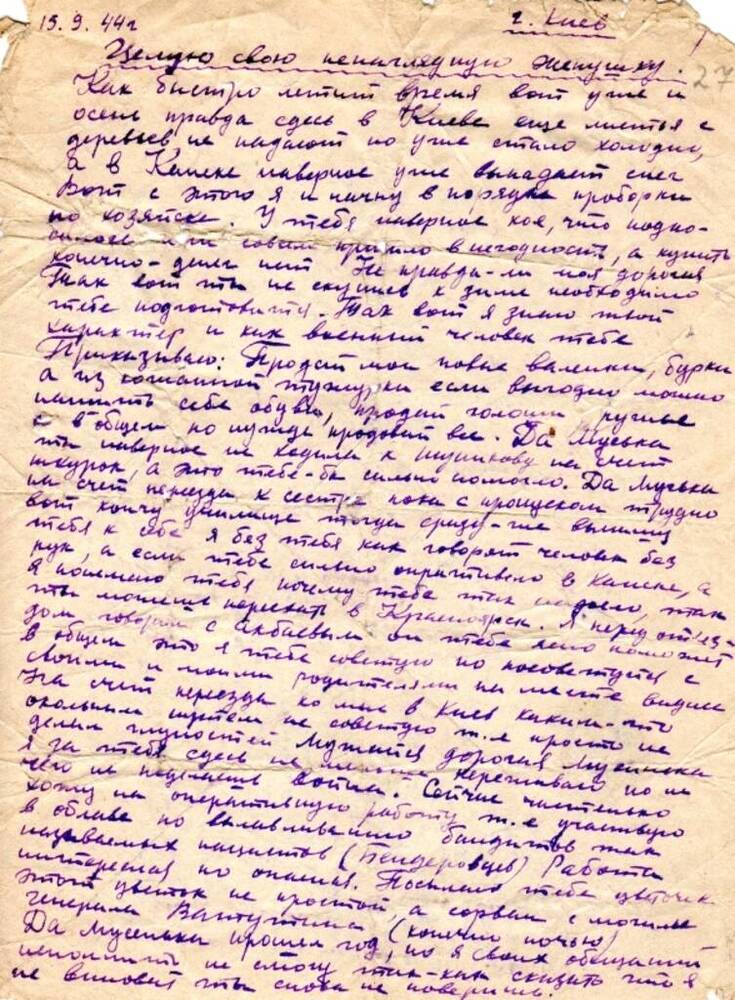 15.9.44г г. Киев
27
Целую свою ненаглядную женушку.
Как быстро летит время вот уже и
осень правда сдесь в Киеве еще листья с
деревьев не падают но уже стало холодно,
а в Канске наверное уже выпадает снег
Вот с этого я и начну в порядке проборки
по хозяйске. У тебя наверное кое, что подно-
силось или совсем пришло в негодность, а купить
конечно-денег нет Не правда-ли моя дорогая
Так вот ты не скупись к зиме необходимо
тебе подготовится. Так вот я знаю твой
характер и как военный человек тебе
Приказываю: Продай мои новые валенки, бурки
а из кожанной тужурки если выгодно можно
пошить себе обувь, продай голоши, ручные
и в общем по нужде продавай все. Да Муська
ты наверное не ходила к на счет
шкурок, а это тебе-бы сильно помогло. Да Муська
на счет переезда к сестре пока с пропуском трудно
вот кончу училище тогда сразу-же вышлю
тебя к себе я без тебя как говорят человек без
рук, а если тебе сильно опротивело в Канске, а
я понимаю тебя почему тебе так надоело, так
ты можешь переехать в Красноярск. Я перед отъез-
дом говорил с Акбаевым он тебе легко поможет
в общем это я тебе советую но посоветуйся с
своими и моими родителями на месте виднее
На счет переезда ко мне в Киев каким-то
окольным путем не советую т.е просто не
делай глупостей Мужайся дорогая Мусинька
я за тебя сдесь не меньше переживаю но ни
чего не поделаешь война. Сейчас частенько
хожу на оперативную работу т.е участвую
в облаве по вылавливанию бандитов так
называемых нацистов (Бендеровцев) Работа
интересная но опасная. Посылаю тебе цветочек
этот цветок не простой, а сорван с могилы
генерала Ватутина (конечно ночью)
Да Мусенька прошел год, но я своих обещаний
исполнить не смогу так-как сказать что я
не виноват ты снова не поверишь.